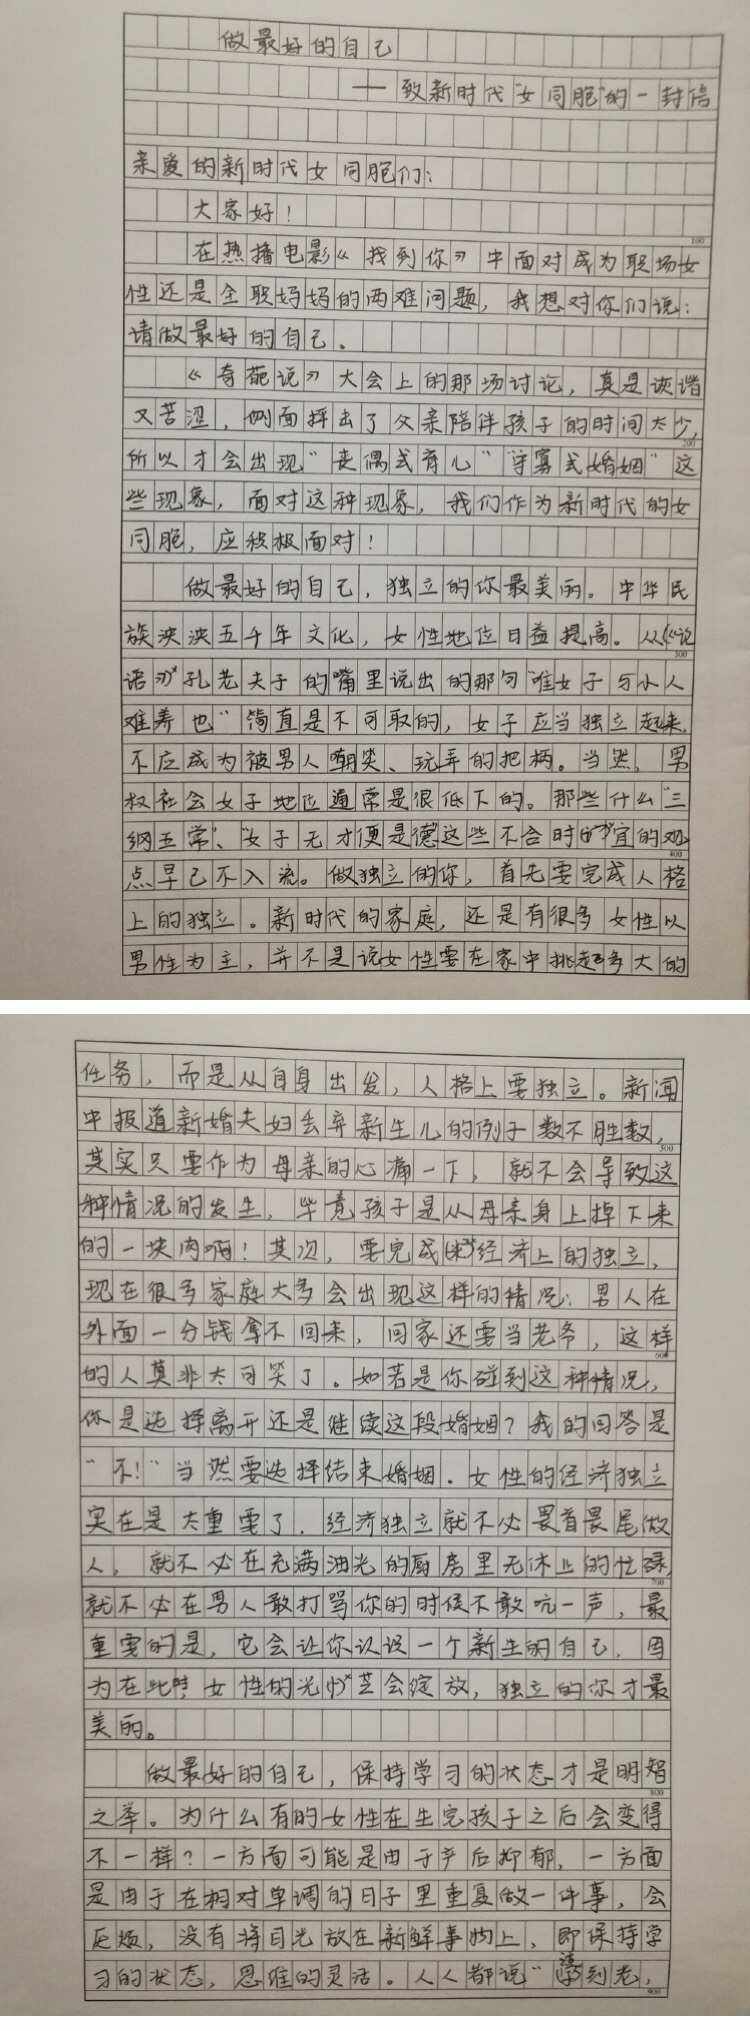 做最好的自己
——致新时代"女同胞"的一封信
亲爱的新时代女同胞们：
大家好！
100
在热播电影《找到你》中面对成为职场女
性还是全职妈妈的两难问题，我想对你们说：
请做最好的自己。
《奇葩说》大会上的那场讨论，真是诙谐
又苦涩，侧面抨击了父亲陪伴孩子的时间太少，
200
所以才会出现"丧偶式育儿""守寡式婚姻"这
些现象，面对这种现象，我们作为新时代的女
同胞，应积极面对！
做最好的自己，独立的你最美丽。中华民
族泱泱五千年文化，女性地位日益提高。从《论
300
语》孔老夫子的嘴里说出的那句"唯女子与小人
难养也"简直是不可取的，女子应当独立起来，
不应成为被男人嘲笑、玩弄的把柄。当然，男
权社会女子地位通常是很低下的。那些什么"三
纲五常"、"女子无才便是德"这些不合时宜的观
400
点早已不入流。做独立的你，首先要完成人格
上的独立。新时代的家庭，还是有很多女性以
男性为主，并不是说女性要在家中挑起多大的
任务，而是从自身出发，人格上要独立。新闻
中报道新婚夫妇丢弃新生儿的例子数不胜数，
500
其实只要作为母亲的心痛一下，就不会导致这
种情况的发生，毕竟孩子是从母亲身上掉下来
的一块肉啊！其次，要完成经济上的独立，
现在很多家庭大多会出现这样的情况：男人在
外面一分钱拿不回来，回家还要当老爷，这样
600
的人莫非太可笑了。如若是你碰到这种情况，
你是选择离开还是继续这段婚姻？我的回答是
"不！"当然要选择结束婚姻．女性的经济独立
实在是太重要了．经济独立就不必畏首畏尾做
人，就不必在充满油光的厨房里无休止的忙碌，
700
就不必在男人敢打骂你的时候不敢吭一声，最
重要的是，它会让你认识一个新生的自己，因
为在此时女性的光芒会绽放，独立的你才最
美丽。
做最好的自己，保持学习的状态才是明智
800
之举。为什么有的女性在生完孩子之后会变得
不一样？一方面可能是由于产后抑郁，一方面
是由于在相对单调的日子里重复做一件事，会
厌烦，没有将目光放在新鲜事物上，即保持学
习的状态，思维的灵活。人人都说"活到老，
900